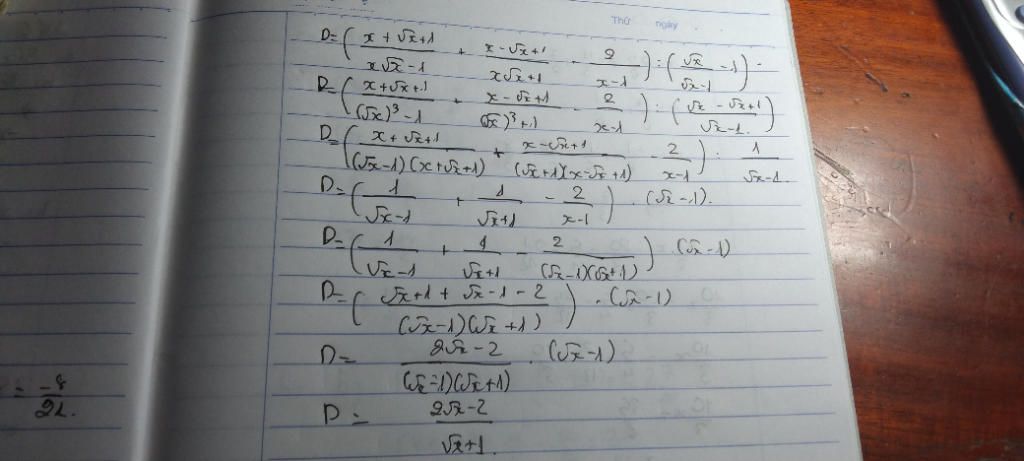 Thứ ngày
D=( (x+√x+1)/(x√x-1) + (x-√x+1)/(x√x+1) - 2/(x-1) ) : ( √x/(√x-1) - 1 ) .
D=( (x+√x+1)/((√x)³-1) + (x-√x+1)/((√x)³+1) - 2/(x-1) ) : ( (√x-√x+1)/(√x-1) )
D=( (x+√x+1)/((√x-1)(x+√x+1)) + (x-√x+1)/((√x+1)(x-√x+1)) - 2/(x-1) ) : 1/(√x-1)
D=( 1/(√x-1) + 1/(√x+1) - 2/(x-1) ) . (√x-1).
D=( 1/(√x-1) + 1/(√x+1) - 2/((√x-1)(√x+1)) ) . (√x-1)
D=( (√x+1+√x-1-2)/((√x-1)(√x+1)) ) . (√x-1)
D= (2√x-2)/((√x-1)(√x+1)) . (√x-1)
D= (2√x-2)/(√x+1) .